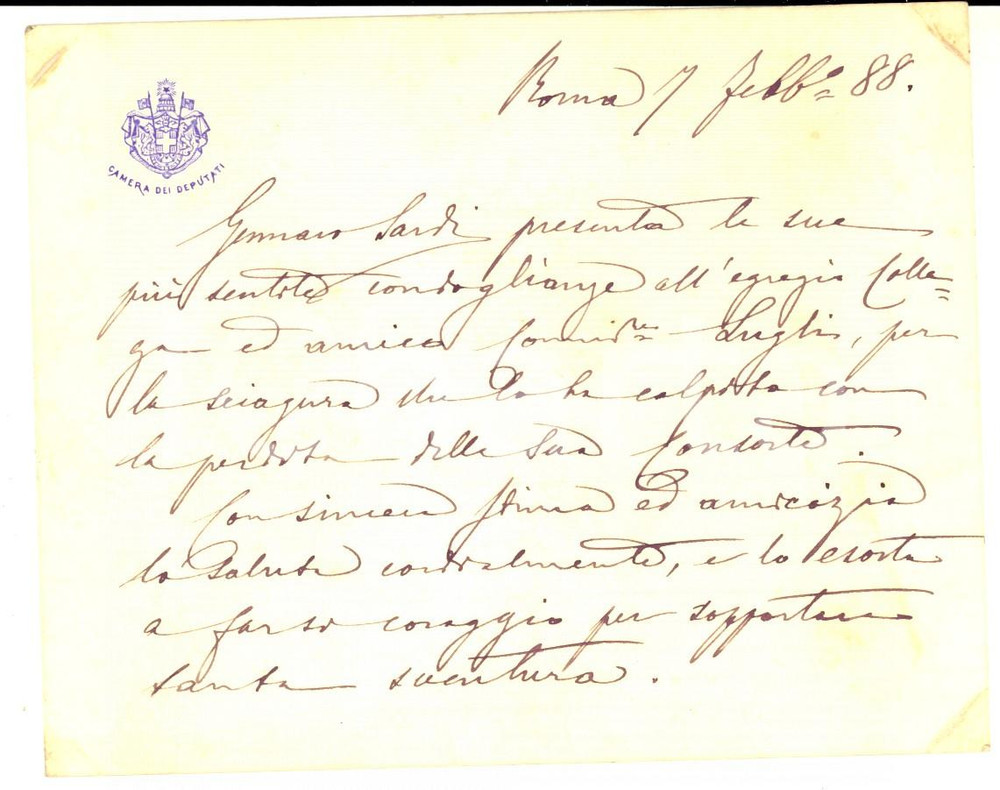 Roma 7 Febb.o 88.
CAMERA DEI DEPUTATI
Gennaro Sardi presenta le sue
più sentite condoglianze all'egregio Colle=
ga ed amico Luglio, per
la sciagura che lo ha colpito con
la perdita della Sua Consorte.
Con sincera stima ed amicizia
lo saluta cordialmente, e lo esorta
a farsi coraggio per sopportare
tanta sventura.